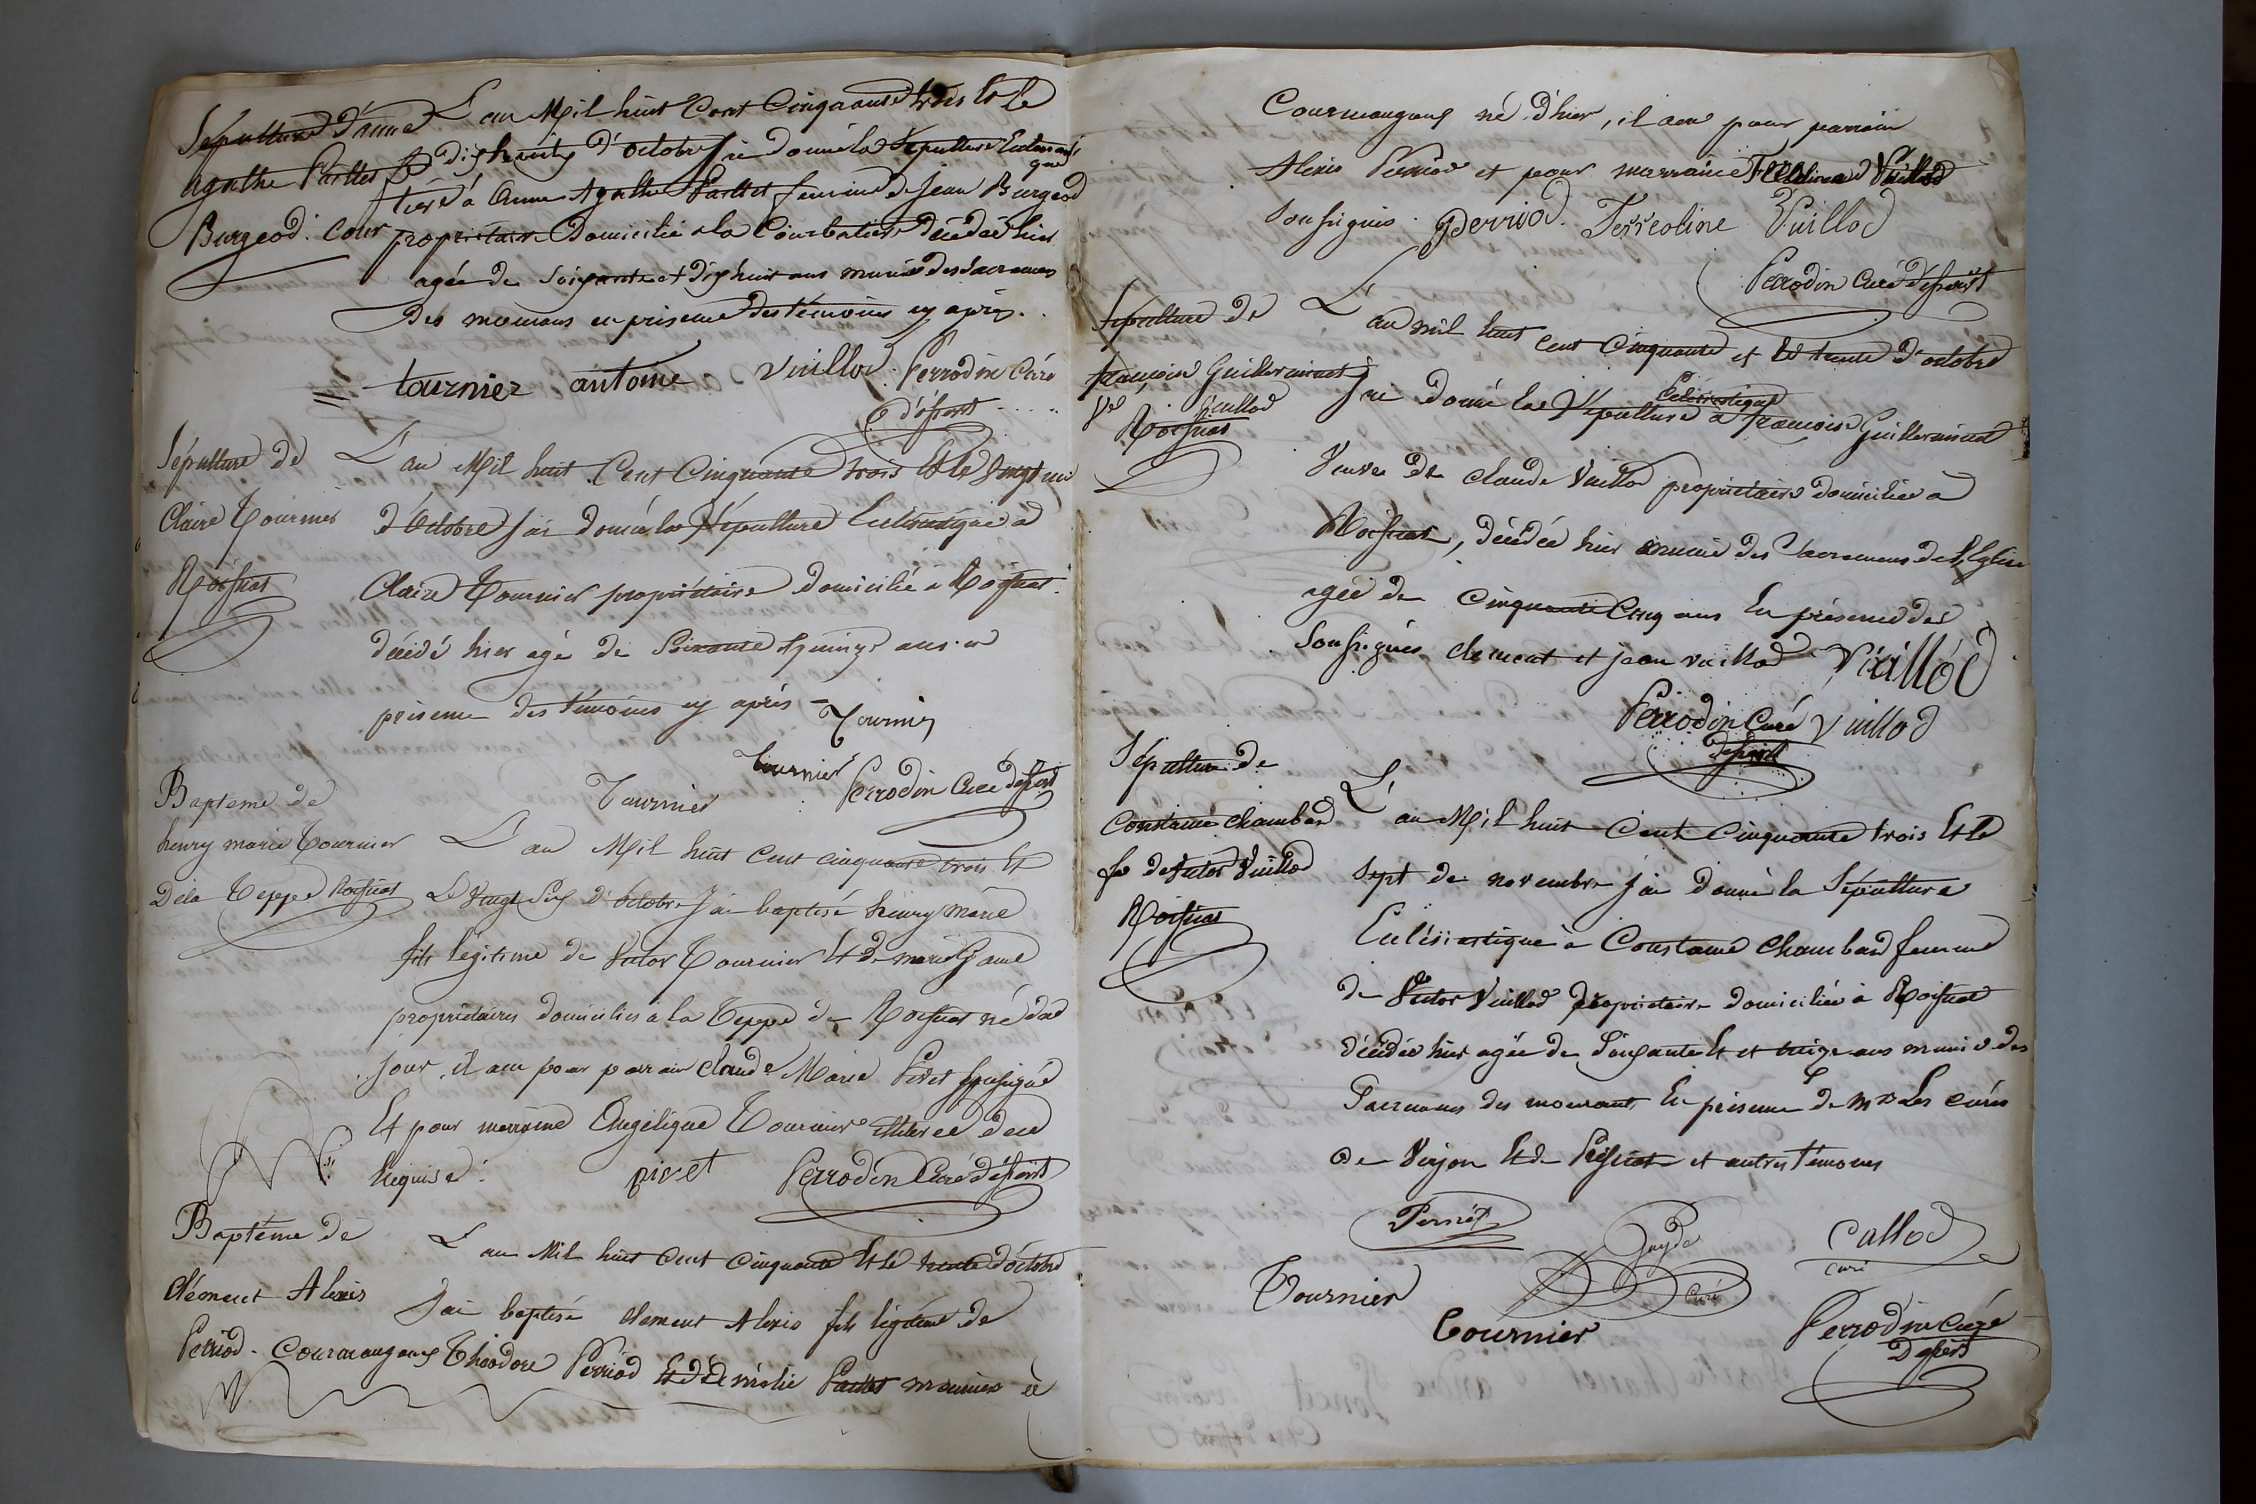 Sépulture d'anne
agathe Paillet fe
Burgeod. Cour
L'an Mil huit Cent Cinquante trois Et le
dix huity d'octobre J'ai donné la sépulture Eclesiasti
que
à anne Agathe Paillet femme de Jean Burgeod
propriétaire Domicilié a la Courbatiere Décédée hier
agée de Soixante et dix huit ans munie des sacremens
Des mourans en présence des témoins cy après.
tournier antoine Vuillod Perrodin Curé
d'épout
Sépulture de
Claire Tournier
Roissiat
L'an Mil huit Cent Cinquante trois Et le Vingt un
d'Octobre J'ai donné la Sépulture Eclésiastique a
Claire Tournier propriétaire domicilié a Roissiat.
décédé hier agé de Soixante quinze ans. en
présence des témoins cy après - Tournier
Tournier tournier Perrodin Curé
Bapteme de
henry marie Tournier
Dela Teppe Roissiat
L'an Mil huit Cent cinquante trois Et
Le Vingt Six d'Octobre J'ai baptisé henry Marie
fils légitime de Victor Tournier Et de marie
propriétaires domiciliés a la Teppe de Roissiat né
jour, il a eu pour parrain Claude Marie Pivet soussigné
Et pour marraine Angélique Tournier illiterée de ce
Requise. pivet Perrodin Curé
Baptême de
Clément Alexis
Perriod. Courmangoux
L'an Mil huit Cent Cinquante Et le trente d'octobre
J'ai baptisé Clement Alexis fils légitime de
Théodore Perriod Et de Emélie Paillet meunier à
Courmangoux né d'hier, il a eu pour parrain
Alexis Perriod et pour marraine Vuillod
Soussignés. Perriod. Ferréoline Vuillod
Perrodin Curé
Sépulture de
françoise Guillerminet
Ve Vuillod
Roissiat
L'an mil huit cent Cinquante et le trente d'octobre
J'ai Donné la Sépulture Eclésiastique à françoise Guillerminet
Veuve de Claude Vuillod propriétaire domiciliée a
Roissiat, décédée hier munie des Sacremens de l'Eglise
agée de Cinquante Cinq ans En présence des
Soussignés clement et jean vuillod Vuillod
Perrodin Curé Vuillod
Sépulture de
Constance Chambard
fe de Victor Vuillod
Roissiat
L'an Mil huit Cent Cinquante trois Et le
Sept de novembre J'ai Donné la Sépulture
Eclésiastique à Constance Chambard femme
de Victor Vuillod propriétaire domiciliée à Roissiat
décédée hier agée de Soixante Et et treize ans munie des
Sacremens des mourants, En présence de Mrs Les curés
De Verjon Et de Pressiat et autres témoins
Pernet
Curé
Callod
curé
Tournier
Tournier
Perrodin Curé